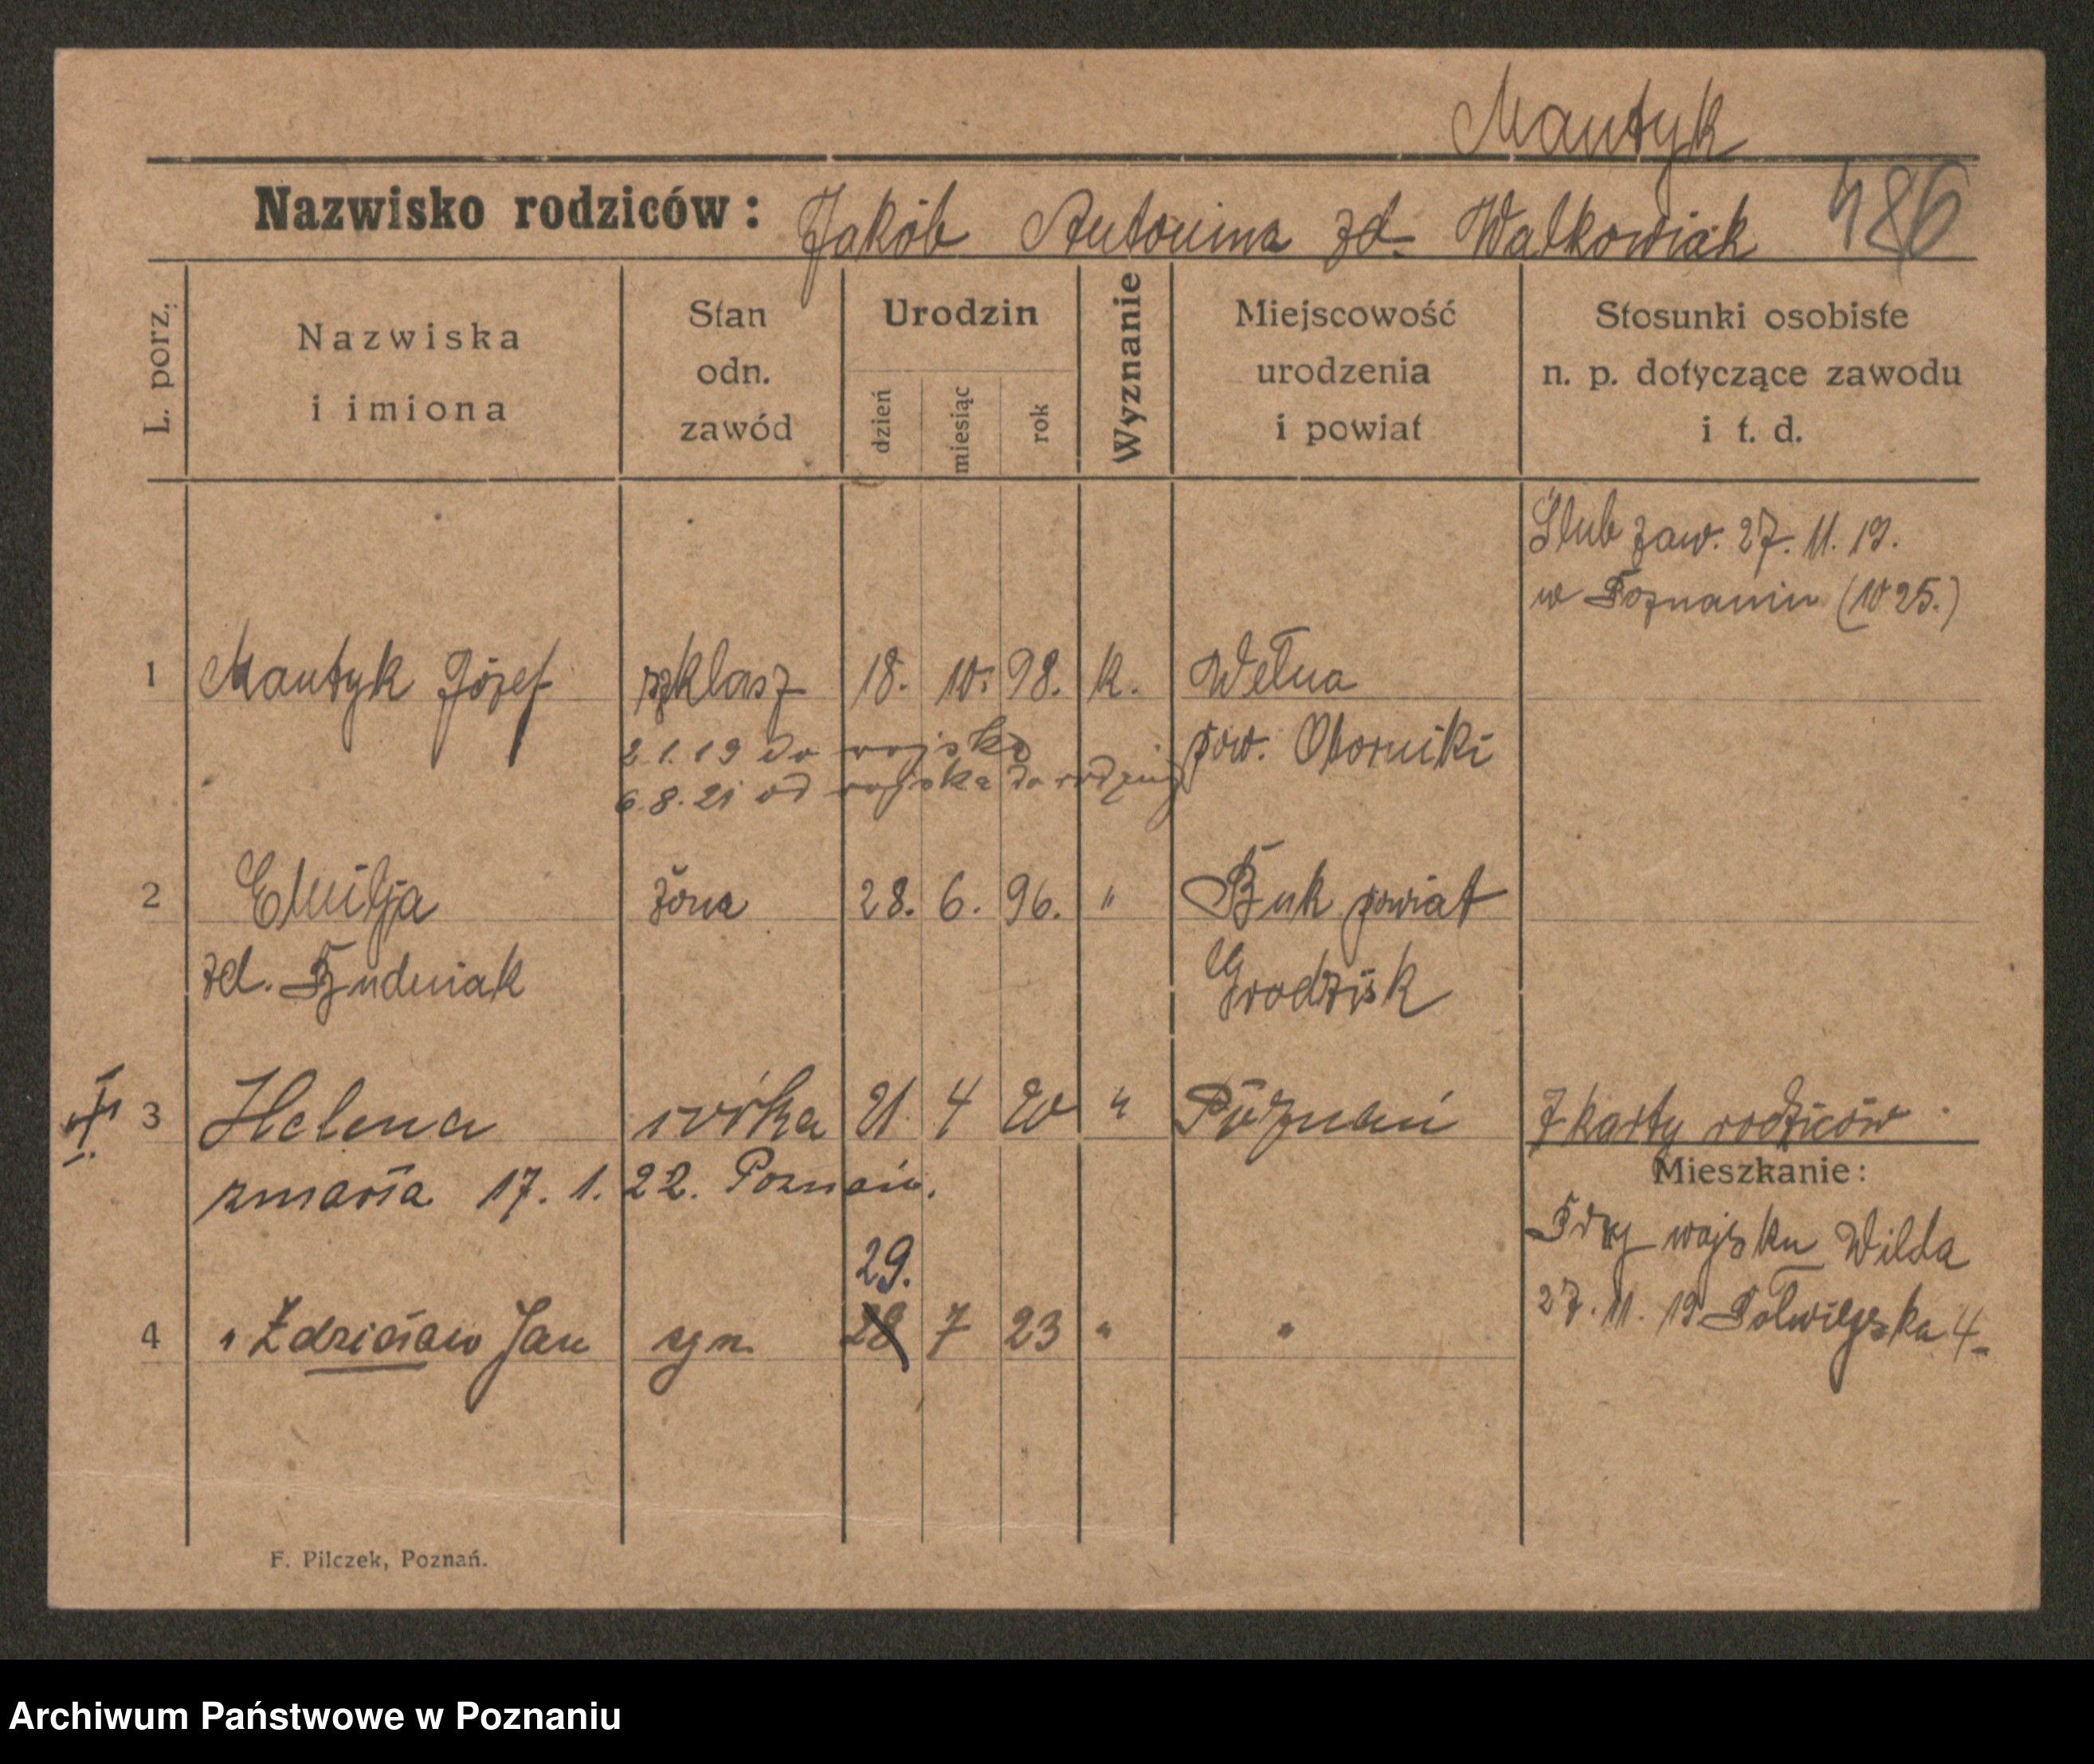 Mantyk
Nazwisko rodziców: Jakób Antonina zd. Walkowiak 486
L. porz.
Nazwiska i imiona
Stan odn. zawód
Urodzin
dzień miesiąc rok
Wyznanie
Miejscowość urodzenia i powiat
Stosunki osobiste n. p. dotyczące zawodu i t. d.
Ślub zaw. 27. 11. 19.
w Poznaniu (1025.)
1 Mantyk Józef szklasz 18. 10. 98. k. Wełna
pow. Oborniki
2.1.19 do wojska
6.8.21 od wojska do rodziny
2 Emilja żona 28. 6. 96. " Buk powiat
zd. Budniak Grodzisk
3 Helena córka 21. 4 20 " Poznań Z karty rodziców
zmarła 17. 1. 22. Poznań.
Mieszkanie:
Przy wojsku Wilda
27. 11. 19 Półwiejska 4
29.
4 " Zdzisław Jan syn 28 7 23 " "
F. Pilczek, Poznań.
Archiwum Państwowe w Poznaniu